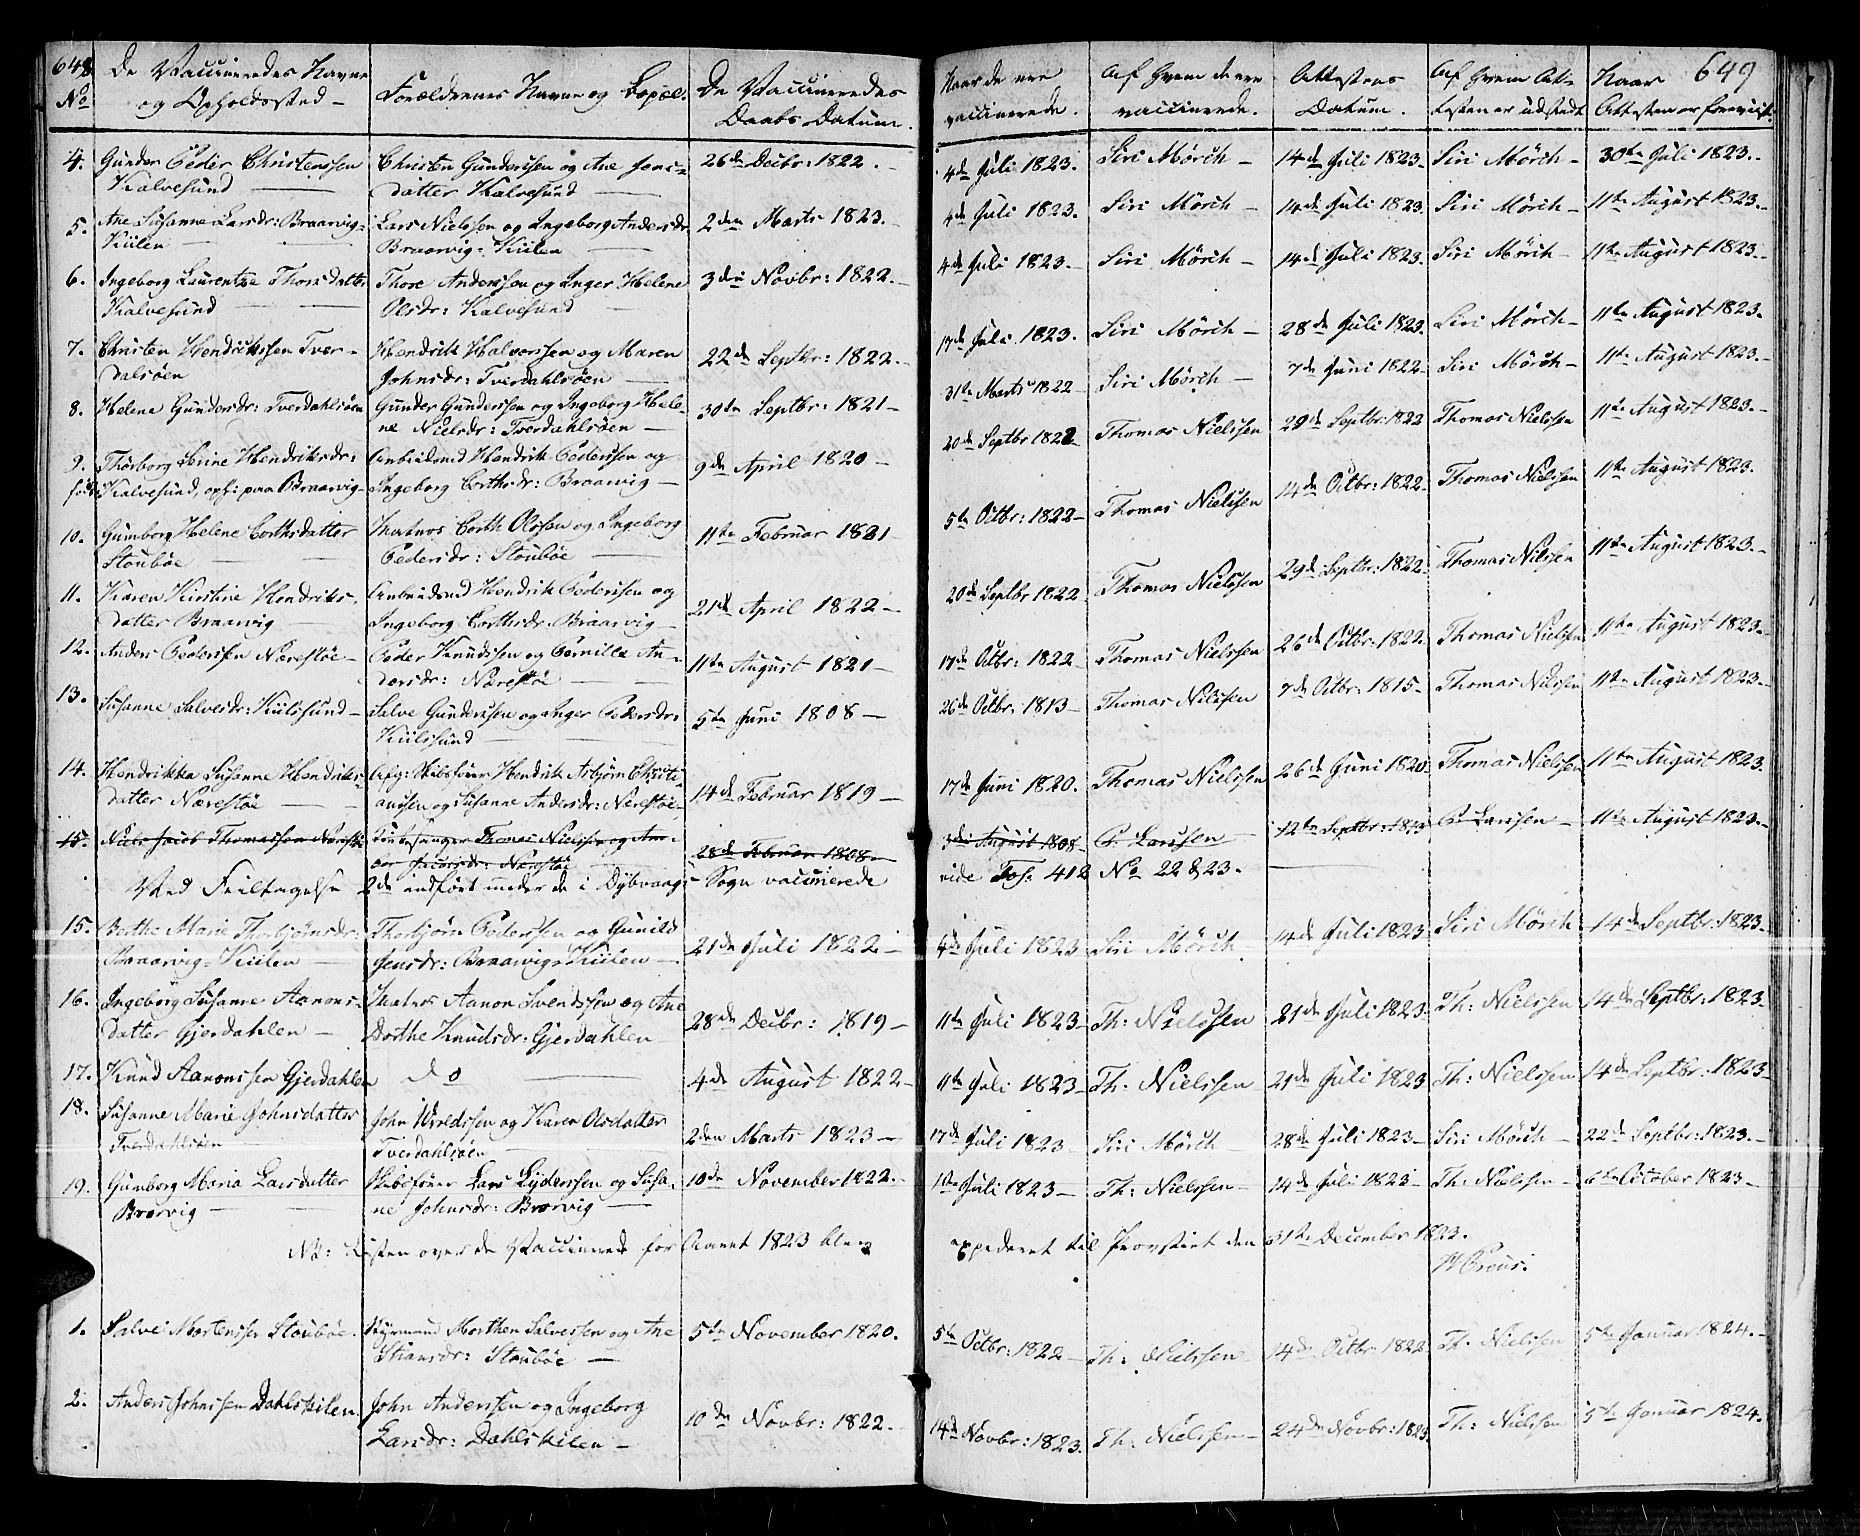 648
No
De Vaccineredes Navne
og Opholdssted –
Forældrenes Navne og Bopæl.
De Vaccineredes
Daabs Datum.
Naar de ere
vaccinerede.
Af hvem de ere
vaccinerede.
Attestens
Datum.
Af hvem Att-
testen er udstedt
Naar
Attesten er foreviist.
649
4. Gunder Peder Christenssen
Kalvesund
Christen Gunderssen og Ane Jens-
datter Kalvesund
26de Decbr: 1822.
4de Juli 1823.
Siri Mörch –
14de Juli 1823
Siri Mörch –
30te Juli 1823.
5. Ane Susanne Larsdr: Braarvig-
Kiilen
Lars Nielssen og Ingeborg Andersdr
Braarvig-Kiilen
2den Marts 1823.
4de Juli 1823.
Siri Mörch –
14de Juli 1823
Siri Mörch –
11te August 1823.
6. Ingeborg Laurentze Thorsdatter
Kalvesund
Thore Anderssen og Inger Helene
Olsdr: Kalvesund
3die Novbr: 1822.
4de Juli 1823.
Siri Mörch –
14de Juli 1823.
Siri Mörch –
11te August 1823.
7. Christen Hendrikssen Tver-
dalsöen
Hendrik Halvorssen og Maren
Johnsdr: Tverdahlsöen
22de Septbr: 1822.
17de Juli 1823.
Siri Mörch –
28de Juli 1823.
Siri Mörch –
11te August 1823.
8. Helene Gundersdr: Tverdahlsöen
Gunder Gunderssen og Ingeborg Hele-
ne Nielsdr: Tverdahlsöen –
30te Septbr: 1821 –
31te Marts 1822
Siri Mörch –
7de Juni 1822
Siri Mörch –
11te August 1823.
9. Thorborg Serine Hendriksdr:
Kalvesund, oph: paa Braarvig
Hendrik Pederssen og
Ingeborg Corthsdr: Braarvig –
9de April 1820 –
20de Septbr 1822
Thomas Nielssen
29de Septbr: 1822
Thomas Nielssen
11te August 1823.
10. Gumborg Helene Corthsdatter
Stoubøe
Corth Olssen og Ingeborg
Pedersdr: Stoubøe
11te Februar 1821
5te Octbr: 1822 –
Thomas Nielssen
14de Octbr: 1822
Thomas Nielssen
11te August 1823.
11. Karen Kirstine Hendriks-
datter Braarvig
Hendrik Pederssen og
Ingeborg Corthsdr. Braarvig
21de April 1822 –
20de Septbr 1822
Thomas Nielssen
29de Septbr: 1822
Thomas Nielssen
11te August 1823.
12. Anders Pederssen Næresföe –
Peder Knudssen og Pernille An-
dersdr: Næresföe
11te August 1821 –
17de Octbr: 1822
Thomas Nielssen
26de Octbr: 1822
Thomas Nielssen
11te August 1823.
13. Susanne Salvesdr: Kiilsund –
Salve Gunderssen og Inger Pedersdr:
Kiilssund
5te Juni 1808 –
26de Octbr: 1813
Thomas Nielssen
7de Octbr: 1815
Thomas Nielssen
11te August 1823.
14. Hendrikka Susanne Hendriks-
datter Næresföe
Afg: Skibsfører Hendrik Arbjørn Christi-
anssen og Susanne Andersdr: Næresföe
14de Februar 1819 –
17de Juni 1820.
Thomas Nielssen
26de Juni 1820
Thomas Nielssen
11te August 1823.
15. Niels Jacob Thomassen Næresföe
Thomas Nielssen og
Næresföe
28de Februar 1808
3die August 1808
P. Larssen
12te Septbr: 1813
P. Larssen –
11te August 1823.
Ved Feiltagelse 2de indført under de i Dybvaag-Sogn vaccinerede
vide Fol. 412 No 22 & 23.
15. Berthe Marie Thorbjörnsdr:
Braarvig-Kiilen
Thorbjørn Pederssen og Gunild
Jensdr: Braarvig-Kiilen
21de Juli 1822 –
4de Juli 1823
Siri Mörch
14de Juli 1823
Siri Mörch
14de Septbr: 1823
16. Ingeborg Susanne Aanons-
datter Gjerdahlen
Aanon Svendssøn og Ane
Dorthe Knudsdr: Gjerdahlen
28de Decbr: 1819 –
11te Juli 1823
Th: Nielssen
21de Juli 1823
Th: Nielssen
14de Septbr: 1823
17. Knud Aanonssen Gjerdahlen
do
4de August 1822
11te Juli 1823
Th: Nielssen
21de Juli 1823
Th: Nielssen
14de Septbr: 1823
18. Susanne Marie Johnsdatter
Tverdahlsöen
John Wroldssen og Karen Olsdatter
Tverdahlsöen
2den Marts 1823
17de Juli 1823
Siri Mörch
28de Juli 1823
Siri Mörch
22de Septbr: 1823.
19. Gumborg Maria Larsdatter
Brorvig
Skibsfører Lars Lyderssen og Susa-
ne Johnsdr: Brorvig
10de November 1822.
1ste Juli 1823
Th: Nielssen
14de Juli 1823
Th: Nielssen
6te October 1823
NB: Listen over de Vaccinerede for Aaret 1823 blev expederet til Provstiet den 31te December 1823.
1. Salve Mortenssen Stoubøe.
Styrmand Morthen Salvessen og Ane
Stiansdr: Stoubøe
5te November 1820.
5te Octbr: 1822
Th: Nielssen
14de Octbr 1822
Th: Nielssen
5te Januar 1824.
2. Anders Johnssen Dahlskilen
John Anderssen og Ingeborg
Larsdr: Dahlskilen –
10de Novbr: 1822.
14de Novbr: 1823.
Th: Nielssen
24de Novbr: 1823
Th: Nielssen
5te Januar 1824.